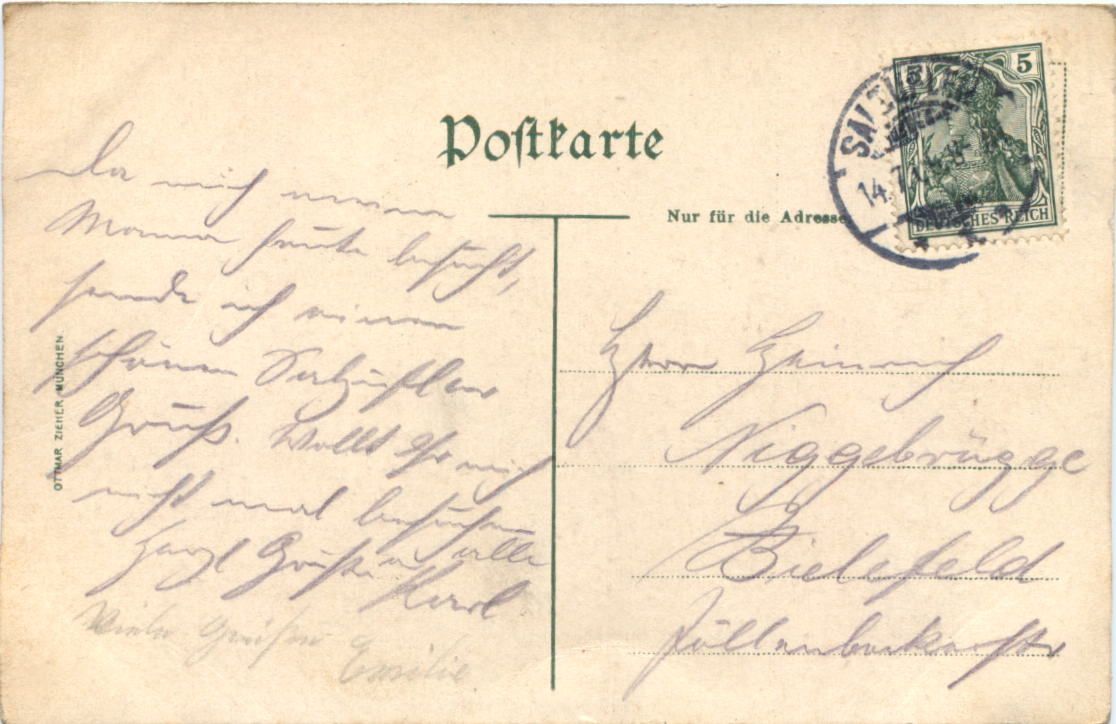 Postkarte
Nur für die Adresse
5 5
DEUTSCHES REICH
SALZUFLEN
14.7.
OTTMAR ZIEHER, MÜNCHEN.
Da mich meine
Mama heute besucht,
sende ich einen
schönen Salzufler
Gruß. Wollt Ihr mich
nicht mal besuchen
Herzl Grüße an alle
Karl
Viele Grüße
Emilie
Herrn Heinrich
Niggebrügge
Bielefeld
Jöllenbeckerstr